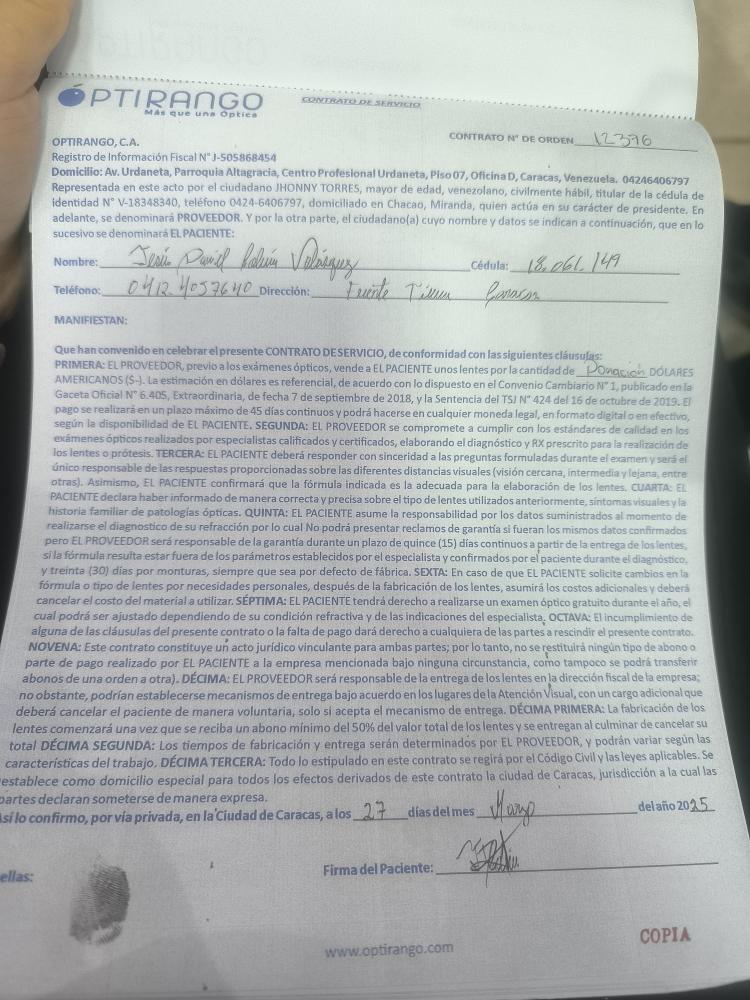 OPTIRANGO
Más que una Óptica
CONTRATO DE SERVICIO
CONTRATO N° DE ORDEN 12376
OPTIRANGO, C.A.
Registro de Información Fiscal N° J-505868454
Domicilio: Av. Urdaneta, Parroquia Altagracia, Centro Profesional Urdaneta, Piso 07, Oficina D, Caracas, Venezuela. 04246406797
Representada en este acto por el ciudadano JHONNY TORRES, mayor de edad, venezolano, civilmente hábil, titular de la cédula de
identidad N° V-18348340, teléfono 0424-6406797, domiciliado en Chacao, Miranda, quien actúa en su carácter de presidente. En
adelante, se denominará PROVEEDOR. Y por la otra parte, el ciudadano(a) cuyo nombre y datos se indican a continuación, que en lo
sucesivo se denominará EL PACIENTE:
Nombre: Jesús David Velásquez Cédula: 18.061.149
Teléfono: 0412.4057640 Dirección: Fuente Caracas
MANIFIESTAN:
Que han convenido en celebrar el presente CONTRATO DE SERVICIO, de conformidad con las siguientes cláusulas:
PRIMERA: EL PROVEEDOR, previo a los exámenes ópticos, vende a EL PACIENTE unos lentes por la cantidad de Donación DÓLARES
AMERICANOS ($-). La estimación en dólares es referencial, de acuerdo con lo dispuesto en el Convenio Cambiario N° 1, publicado en la
Gaceta Oficial N° 6.405, Extraordinaria, de fecha 7 de septiembre de 2018, y la Sentencia del TSJ N° 424 del 16 de octubre de 2019. El
pago se realizará en un plazo máximo de 45 días continuos y podrá hacerse en cualquier moneda legal, en formato digital o en efectivo,
según la disponibilidad de EL PACIENTE. SEGUNDA: EL PROVEEDOR se compromete a cumplir con los estándares de calidad en los
exámenes ópticos realizados por especialistas calificados y certificados, elaborando el diagnóstico y RX prescrito para la realización de
los lentes o prótesis. TERCERA: EL PACIENTE deberá responder con sinceridad a las preguntas formuladas durante el examen y será el
único responsable de las respuestas proporcionadas sobre las diferentes distancias visuales (visión cercana, intermedia y lejana, entre
otras). Asimismo, EL PACIENTE confirmará que la fórmula indicada es la adecuada para la elaboración de los lentes. CUARTA: EL
PACIENTE declara haber informado de manera correcta y precisa sobre el tipo de lentes utilizados anteriormente, síntomas visuales y la
historia familiar de patologías ópticas. QUINTA: EL PACIENTE asume la responsabilidad por los datos suministrados al momento de
realizarse el diagnostico de su refracción por lo cual No podrá presentar reclamos de garantía si fueran los mismos datos confirmados
pero EL PROVEEDOR será responsable de la garantía durante un plazo de quince (15) días continuos a partir de la entrega de los lentes,
si la fórmula resulta estar fuera de los parámetros establecidos por el especialista y confirmados por el paciente durante el diagnóstico,
y treinta (30) días por monturas, siempre que sea por defecto de fábrica. SEXTA: En caso de que EL PACIENTE solicite cambios en la
fórmula o tipo de lentes por necesidades personales, después de la fabricación de los lentes, asumirá los costos adicionales y deberá
cancelar el costo del material a utilizar. SÉPTIMA: EL PACIENTE tendrá derecho a realizarse un examen óptico gratuito durante el año, el
cual podrá ser ajustado dependiendo de su condición refractiva y de las indicaciones del especialista. OCTAVA: El incumplimiento de
alguna de las cláusulas del presente contrato o la falta de pago dará derecho a cualquiera de las partes a rescindir el presente contrato.
NOVENA: Este contrato constituye un acto jurídico vinculante para ambas partes; por lo tanto, no se restituirá ningún tipo de abono o
parte de pago realizado por EL PACIENTE a la empresa mencionada bajo ninguna circunstancia, como tampoco se podrá transferir
abonos de una orden a otra). DÉCIMA: EL PROVEEDOR será responsable de la entrega de los lentes en la dirección fiscal de la empresa;
no obstante, podrían establecerse mecanismos de entrega bajo acuerdo en los lugares de la Atención Visual, con un cargo adicional que
deberá cancelar el paciente de manera voluntaria, solo si acepta el mecanismo de entrega. DÉCIMA PRIMERA: La fabricación de los
lentes comenzará una vez que se reciba un abono mínimo del 50% del valor total de los lentes y se entregan al culminar de cancelar su
total DÉCIMA SEGUNDA: Los tiempos de fabricación y entrega serán determinados por EL PROVEEDOR, y podrán variar según las
características del trabajo. DÉCIMA TERCERA: Todo lo estipulado en este contrato se regirá por el Código Civil y las leyes aplicables. Se
establece como domicilio especial para todos los efectos derivados de este contrato la ciudad de Caracas, jurisdicción a la cual las
partes declaran someterse de manera expresa.
Así lo confirmo, por vía privada, en la Ciudad de Caracas, a los 27 días del mes Marzo del año 2025
ellas:
Firma del Paciente:
www.optirango.com
COPIA